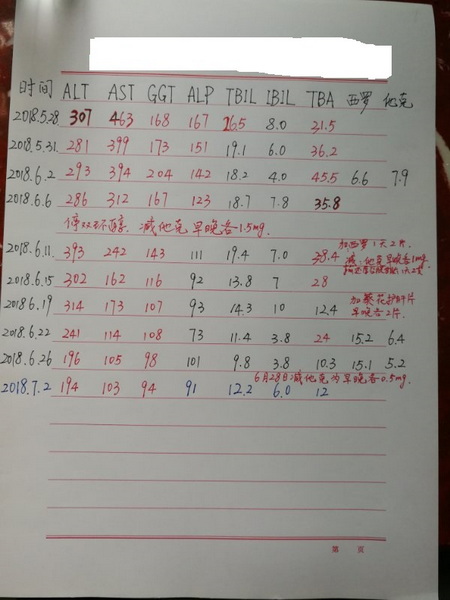 时间 ALT AST GGT ALP TBIL IBIL TBA 西罗 他克
2018.5.28 307 463 168 167 26.5 8.0 31.5
2018.5.31 281 399 173 151 19.1 6.0 36.2
2018.6.2 293 394 204 142 18.2 4.0 45.5 6.6 7.9
2018.6.6 286 312 167 123 18.7 7.8 35.8
停双环醇, 减他克早晚各1.5mg.
2018.6.11 393 242 143 111 19.4 7.0 38.4
加西罗1天2片.
减他克早晚各1mg
2018.6.15 302 162 116 92 13.8 7 28
2018.6.19 314 173 107 93 14.3 10 12.4
加葵花护肝片
早晚各2片.
2018.6.22 241 114 108 73 11.4 3.8 24 15.2 6.4
2018.6.26 196 105 98 101 9.8 3.8 10.3 15.1 5.2
6月28日减他克为早晚各0.5mg.
2018.7.2 194 103 94 91 12.2 6.0 12
第 页